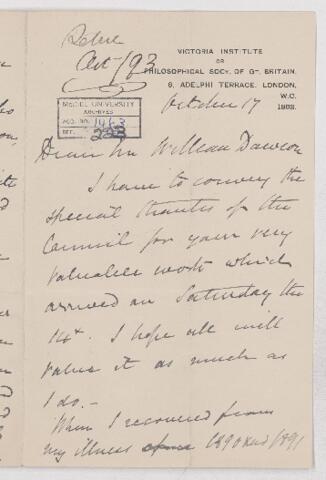 Oct/93
VICTORIA INSTITUTE
OR
PHILOSOPHICAL SOCY. OF GT. BRITAIN.
8, ADELPHI TERRACE, LONDON,
W.C.
October 17
1893.
McGILL UNIVERSITY
ARCHIVES
ACC. NO. 1463
REF.
Dear Sir William Dawson
I have to convey the
special thanks of the
Council for your very
valuable work which
arrived on Saturday the
14th. I hope all will
value it as much as
I do.-
When I recovered from
my illness 1890 and 1891